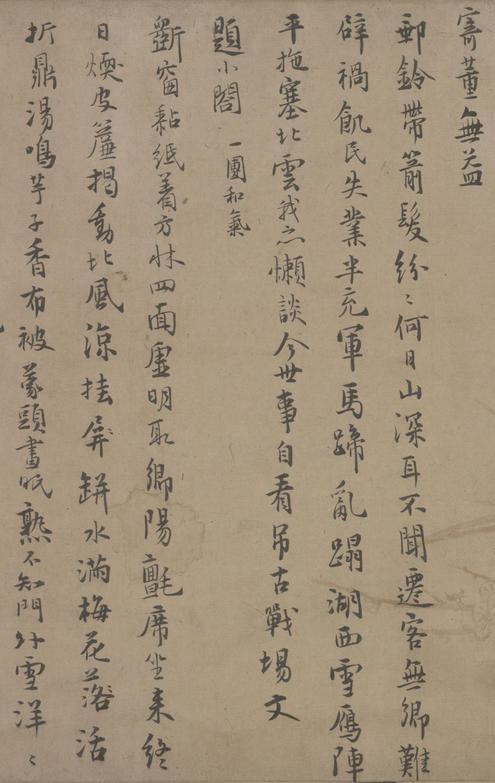 寄董無益
郵鈴帶箭髮紛〻何日山深耳不聞遷客無鄉難
辟禍飢民失業半充軍馬蹄亂蹋湖西雪鴈陣
平拖塞北雲我亦懶談今世事自看吊古戰場文
題小閤 一團和氣
斷窗黏紙着方牀四面虛明取鄉陽氈席坐来終
日煗皮簾揭動北風涼挂屏缾水滿梅花落活
折鼎湯鳴芋子香布被蒙頭晝眠熟不知門外雪洋〻